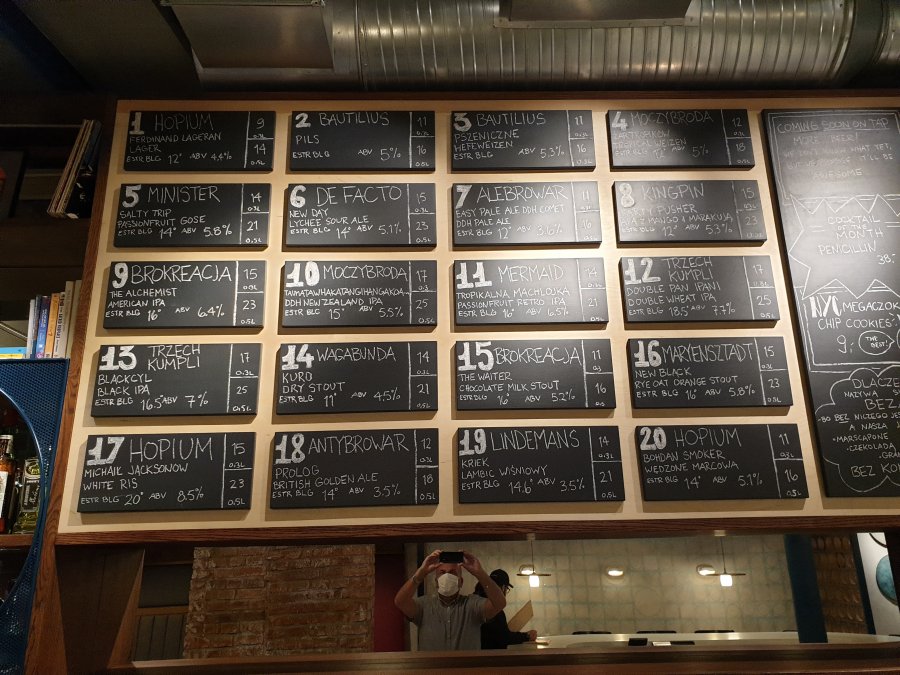 1 HOPIUM 9
FERDINAND LAGERAN 0.3L
LAGER 14
ESTR BLG 12° ABV 4,4%
2 BAUTILIUS 11
PILS 16
ESTR BLG ABV 5% 0.5L
3 BAUTILIUS 11
PSZENICZNE 0.3L
HEFEWEIZEN 16
ESTR BLG ABV 5.3% 0.5L
4 MOCZYBRODA 12
TROPICAL WEIZEN
ESTR BLG 12° ABV 5% 18
5 MINISTER 14
SALTY TRIP 0.3L
PASSIONFRUIT GOSE 21
ESTR BLG 14° ABV 5.8% 0.5L
6 DE FACTO 15
NEW DAY 0.3L
LYCHEE SOUR ALE 23
ESTR BLG 14° ABV 5.1% 0.5L
7 ALEBROWAR 14
EASY PALE ALE DDH COMET
DDH PALE ALE 21
ESTR BLG 12° ABV 3.6% 0.5L
8 KINGPIN 15
PUSHER
MANGO I MARAKUJĄ 23
ESTR BLG 12° ABV 5.3% 0.5L
9 BROKREACJA 15
THE ALCHEMIST 0.3L
AMERICAN IPA 23
ESTR BLG 16° ABV 6.4% 0.5L
10 MOCZYBRODA 17
0.3L
DDH NEW ZEALAND IPA 25
ESTR BLG 15° ABV 5.5% 0.5L
11 MERMAID 14
TROPIKALNA MACHLOJKA
PASSIONFRUIT RETRO IPA 21
ESTR BLG 16° ABV 6.5% 0.5L
12 TRZECH KUMPLI 17
DOUBLE PAN IPANI
DOUBLE WHEAT IPA 25
ESTR BLG 18.5° ABV 7.7% 0.5L
13 TRZECH KUMPLI 17
BLACKCYL 0.3L
BLACK IPA 25
ESTR BLG 16.5° ABV 7% 0.5L
14 WAGABUNDA 14
KURD 0.3L
DRY STOUT 21
ESTR BLG 11° ABV 4.5% 0.5L
15 BROKREACJA 11
THE WAITER 0.3L
CHOCOLATE MILK STOUT 16
ESTR BLG 16° ABV 5.2% 0.5L
16 MARYENSZTADT 15
NEW BLACK 0.3L
RYE OAT ORANGE STOUT 23
ESTR BLG 16° ABV 5.8% 0.5L
17 HOPIUM 15
MICHAIL JACKSONOW 0.3L
WHITE RIS 23
ESTR BLG 20° ABV 8.5% 0.5L
18 ANTYBROWAR 12
PROLOG 0.3L
BRITISH GOLDEN ALE 18
ESTR BLG 14° ABV 3.5% 0.5L
19 LINDEMANS 14
KRIEK 0.3L
LAMBIC WIŚNIOWY 21
ESTR BLG 14.6° ABV 3.5% 0.5L
20 HOPIUM 11
BOHDAN SMOKER 0.3L
WĘDZONE MARCOWA 16
ESTR BLG 14° ABV 5.1% 0.5L
COMING SOON ON TAP
AWESOME
COCKTAIL
OF THE
MONTH
PENICILLIN
38.-
NYC MEGACZOK
CHIP COOKIES
9,- THE BEST!
DLACZE
NAZYWA
BEZ
BO BEZ NICZEGO JEST
A NASZA
- MARSCAPONE
- CZEKOLADĄ
BEZ KO